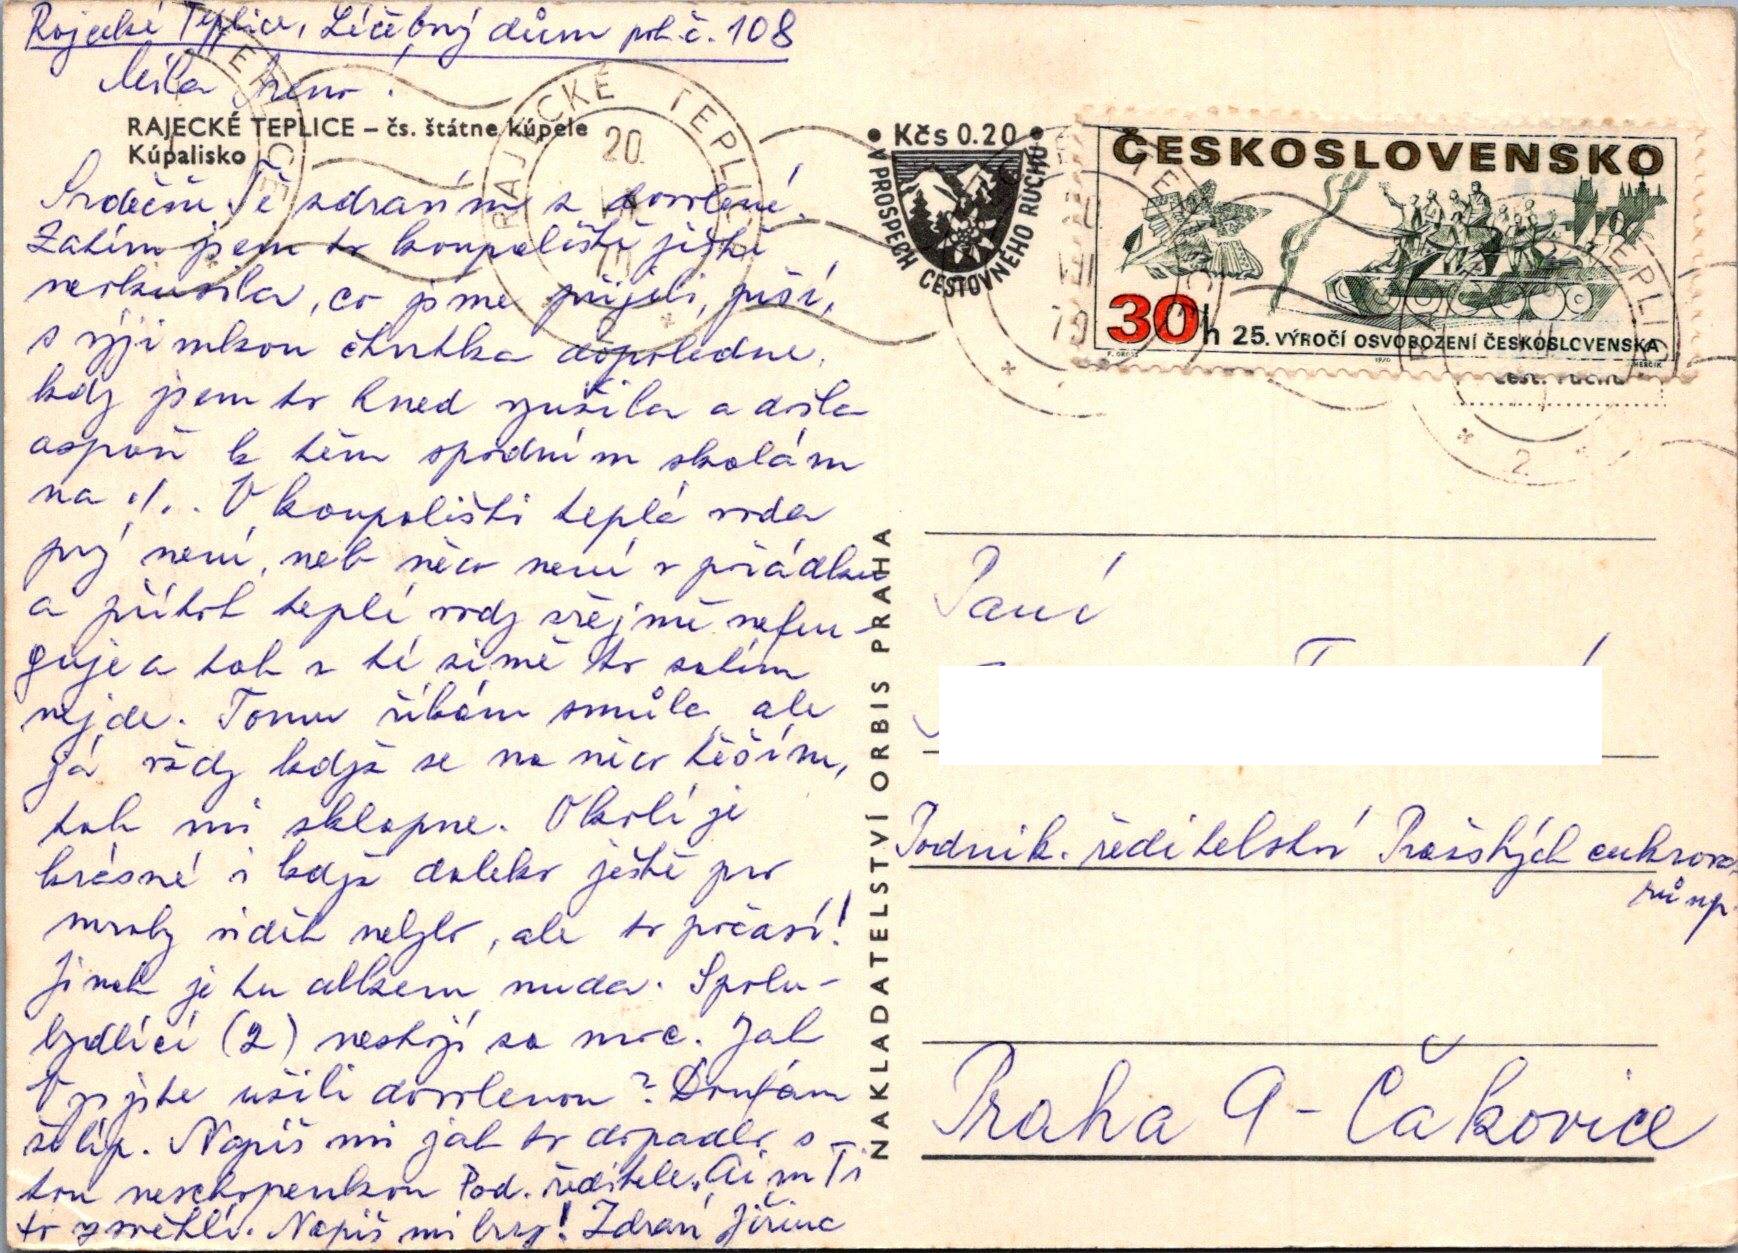 Rajecké Teplice, Léčebný dům pok. č. 108
Milá Ireno!
RAJECKÉ TEPLICE – čs. štátne kúpele
Kúpalisko
Srdečně Tě zdravím z dovolené.
Zatím jsem to koupaliště ještě
nezkusila, co jsme přijeli, prší,
s výjimkou čtvrtka dopoledne,
kdy jsem to hned využila a došla
aspoň k těm spodním skalám
na ./.. V koupališti teplá voda
prý není, neb něco není v pořádku
a přítok teplé vody zřejmě nefun-
guje a tak v té zimě to zatím
nejde. Tomu říkám smůla, ale
já vždy když se na něco těším,
tak mi sklapne. Okolí je
krásné i když daleko ještě pro
mraky vidět nelze, ale to počasí!
Jinak je tu celkem nuda. Spolu-
bydlící (2) nestojí za moc. Jak
Vy jste užili dovolenou? Doufám
že líp. Napiš mi jak to dopadlo s
tou neschopenkou Pod. ředitele. Ať
to vysvětlí. Napiš mi brzy! Zdraví Jiřina
RAJECKÉ TEPLICE
20
Kčs 0.20
V PROSPECH CESTOVNÉHO RUCHU
ČESKOSLOVENSKO
30h 25. VÝROČÍ OSVOBOZENÍ ČESKOSLOVENSKA
1970
HERČÍK
NAKLADATELSTVÍ ORBIS PRAHA
Paní
Podnik. ředitelství Pražských cukrova-
rů np.
Praha 9 - Čakovice